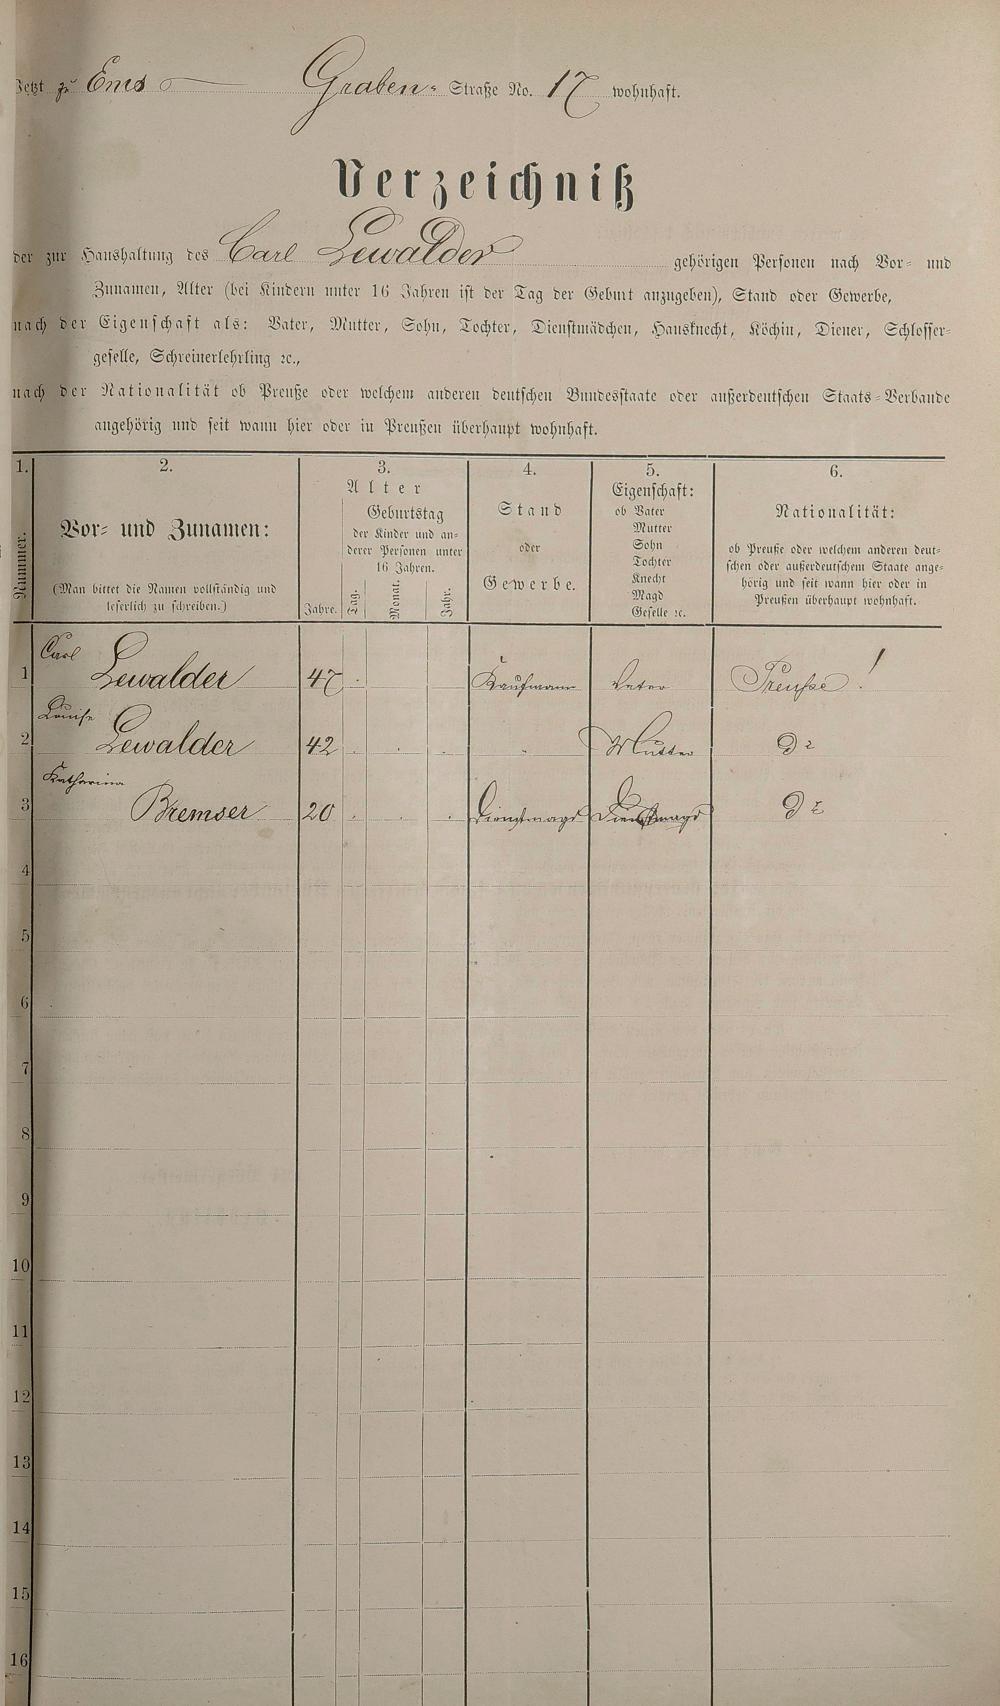 Jetzt zu Ems Graben- Straße No. 17 wohnhaft.
Verzeichniß
der zur Haushaltung des Carl Lewalder gehörigen Personen nach Vor- und
Zunamen, Alter (bei Kindern unter 16 Jahren ist der Tag der Geburt anzugeben), Stand oder Gewerbe,
nach der Eigenschaft als: Vater, Mutter, Sohn, Tochter, Dienstmädchen, Hausknecht, Köchin, Diener, Schlosser-
geselle, Schreinerlehrling ꝛc.,
nach der Nationalität ob Preuße oder welchem anderen deutschen Bundesstaate oder außerdeutschen Staats-Verbande
angehörig und seit wann hier oder in Preußen überhaupt wohnhaft.
1. 2. 3. 4. 5. 6.
Nummer.
Vor- und Zunamen:
(Man bittet die Namen vollständig und
leserlich zu schreiben.)
Alter
Jahre.
Geburtstag
der Kinder und an-
derer Personen unter
16 Jahren.
Tag. Monat. Jahr.
Stand
oder
Gewerbe.
Eigenschaft:
ob Vater
Mutter
Sohn
Tochter
Knecht
Magd
Geselle ꝛc.
Nationalität:
ob Preuße oder welchem anderen deut-
schen oder außerdeutschem Staate ange-
hörig und seit wann hier oder in
Preußen überhaupt wohnhaft.
Carl
1 Lewalder 47 Kaufmann Vater Preuße !
Louise
2 Lewalder 42 " Mutter do
Katharina
3 Bremser 20 Dienstmagd Dienstmagd do
4
5
6
7
8
9
10
11
12
13
14
15
16